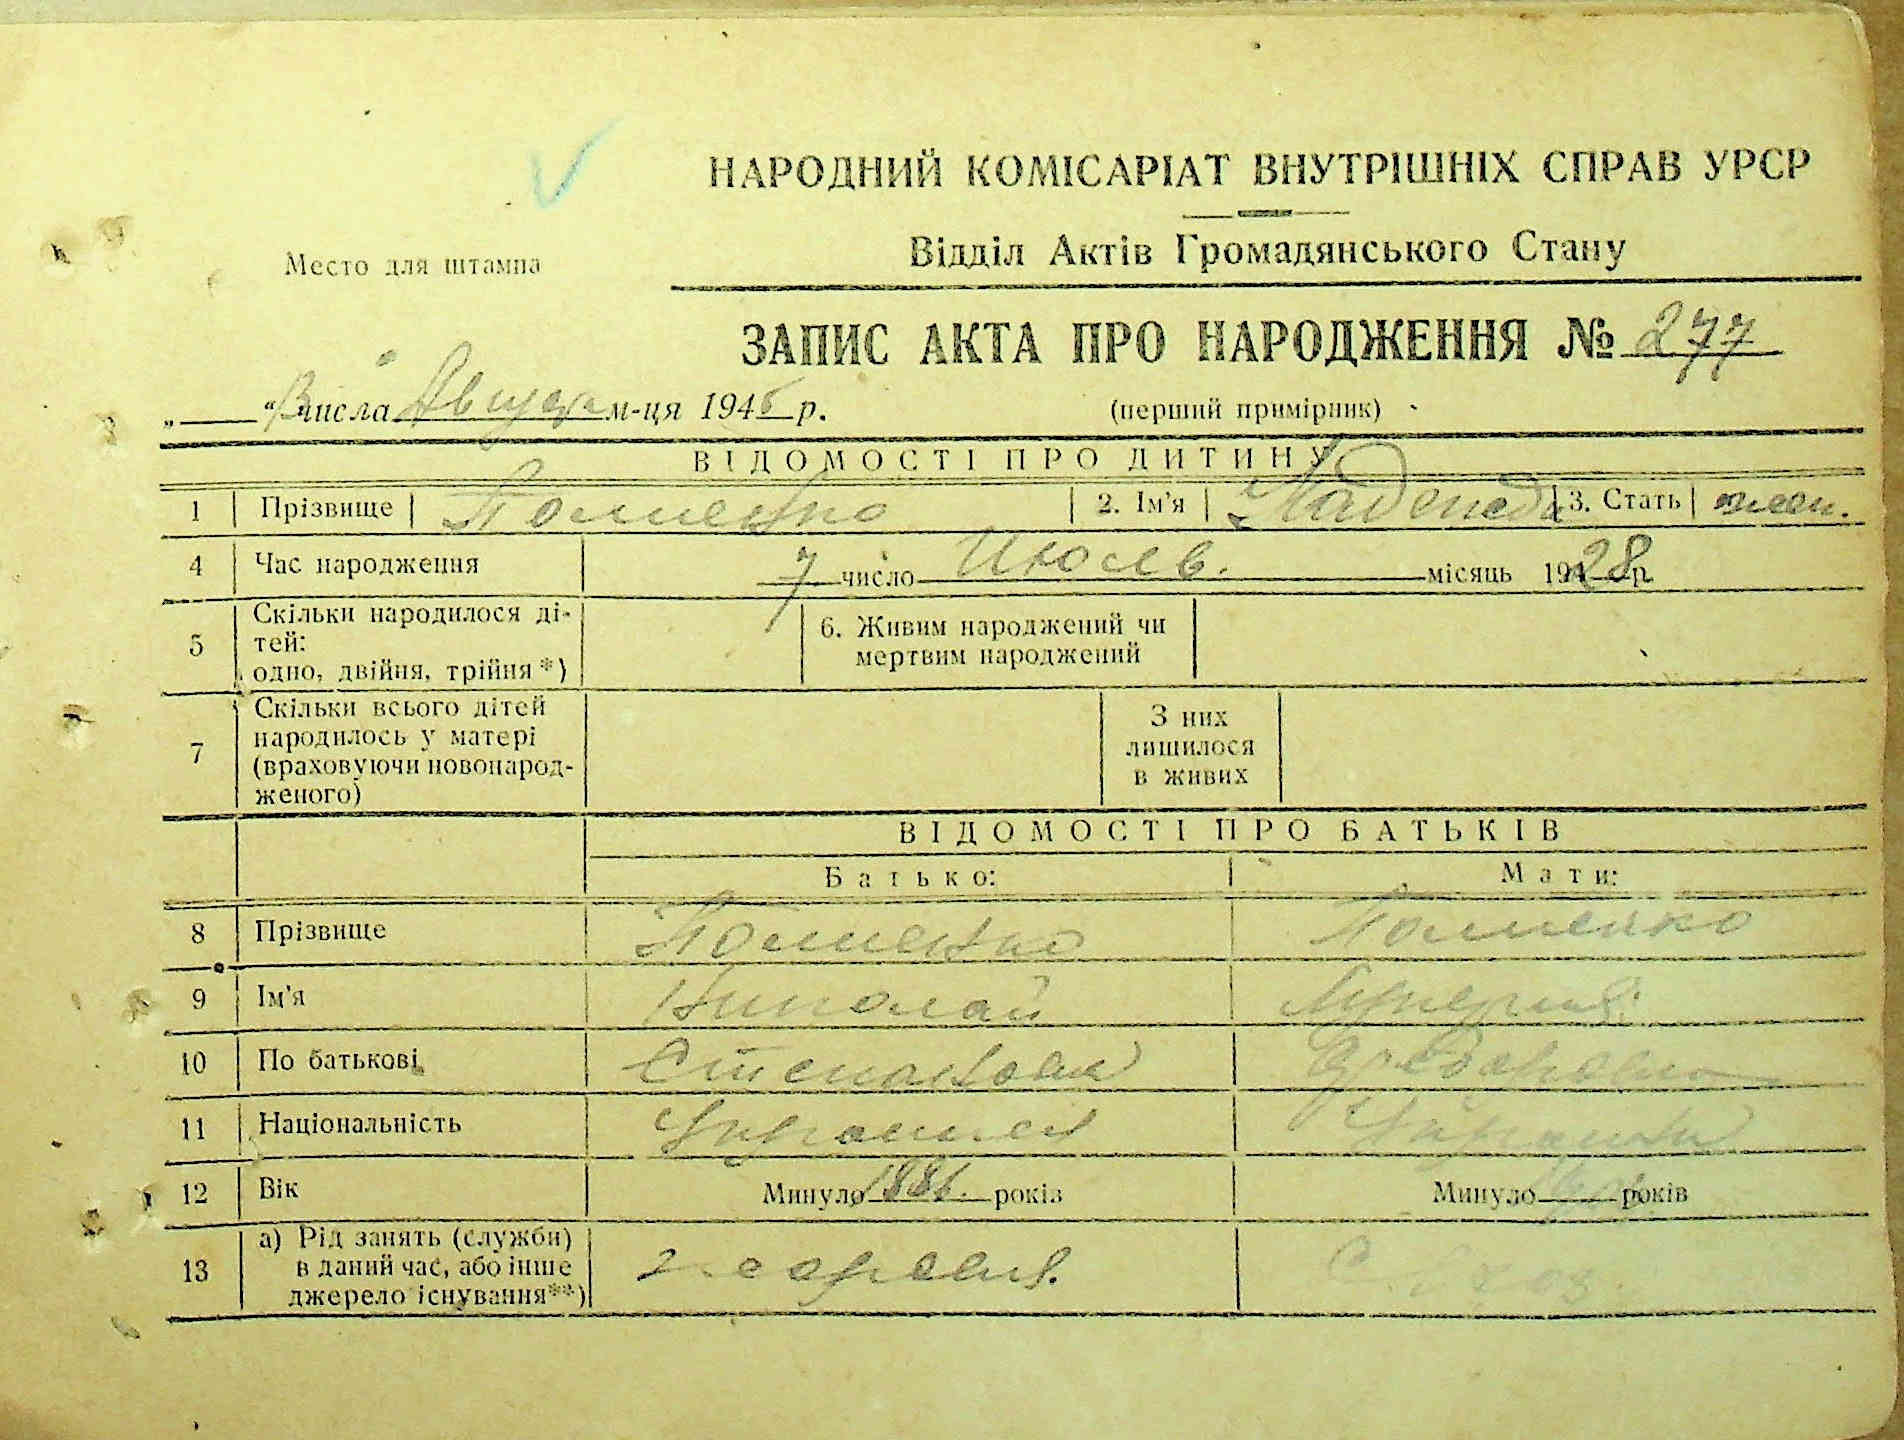 НАРОДНИЙ КОМІСАРІАТ ВНУТРІШНІХ СПРАВ УРСР
Відділ Актів Громадянського Стану
Место для штампа
ЗАПИС АКТА ПРО НАРОДЖЕННЯ № 277
„ “ числа Август м-ця 1945 р. (перший примірник)
ВІДОМОСТІ ПРО ДИТИНУ
1 Прізвище 2. Ім'я Надежда 3. Стать жен.
4 Час народження 7 число Июль. місяць 1928 р.
5 Скільки народилося ді-
тей:
одно, двійня, трійня *)
6. Живим народжений чи
мертвим народжений
7 Скільки всього дітей
народилось у матері
(враховуючи новонарод-
женого)
З них
лишилося
в живих
ВІДОМОСТІ ПРО БАТЬКІВ
Батько: Мати:
8 Прізвище
9 Ім'я Николай
10 По батькові Степанович Федоровна
11 Національність
12 Вік Минуло 1886. років Минуло років
13 а) Рід занять (служби)
в даний час, або інше
джерело існування**)